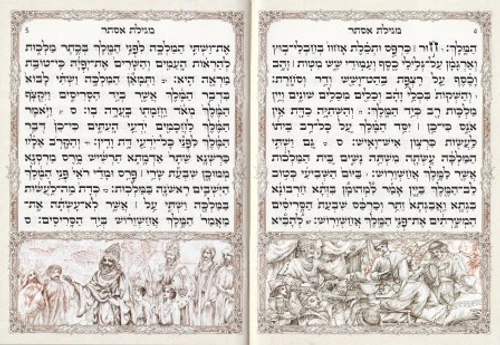 4
מגילת אסתר
הַמֶּלֶךְ: חוּר ׀ כַּרְפַּס וּתְכֵלֶת אָחוּז בְּחַבְלֵי־בוּץ
וְאַרְגָּמָן עַל־גְּלִילֵי כֶסֶף וְעַמּוּדֵי שֵׁשׁ מִטּוֹת ׀ זָהָב
וָכֶסֶף עַל רִצְפַת בַּהַט־וָשֵׁשׁ וְדַר וְסֹחָרֶת:
וְהַשְׁקוֹת בִּכְלֵי זָהָב וְכֵלִים מִכֵּלִים שׁוֹנִים וְיֵין
מַלְכוּת רָב כְּיַד הַמֶּלֶךְ: וְהַשְּׁתִיָּה כַדָּת אֵין
אֹנֵס כִּי־כֵן ׀ יִסַּד הַמֶּלֶךְ עַל כָּל־רַב בֵּיתוֹ
לַעֲשׂוֹת כִּרְצוֹן אִישׁ־וָאִישׁ: ס גַּם וַשְׁתִּי
הַמַּלְכָּה עָשְׂתָה מִשְׁתֵּה נָשִׁים בֵּית הַמַּלְכוּת
אֲשֶׁר לַמֶּלֶךְ אֲחַשְׁוֵרוֹשׁ: בַּיּוֹם הַשְּׁבִיעִי כְּטוֹב
לֵב־הַמֶּלֶךְ בַּיָּיִן אָמַר לִמְהוּמָן בִּזְּתָא חַרְבוֹנָא
בִּגְתָא וַאֲבַגְתָא זֵתַר וְכַרְכַּס שִׁבְעַת הַסָּרִיסִים
הַמְשָׁרְתִים אֶת־פְּנֵי הַמֶּלֶךְ אֲחַשְׁוֵרוֹשׁ: לְהָבִיא
מגילת אסתר
5
אֶת־וַשְׁתִּי הַמַּלְכָּה לִפְנֵי הַמֶּלֶךְ בְּכֶתֶר מַלְכוּת
לְהַרְאוֹת הָעַמִּים וְהַשָּׂרִים אֶת־יָפְיָהּ כִּי־טוֹבַת
מַרְאֶה הִיא: וַתְּמָאֵן הַמַּלְכָּה וַשְׁתִּי לָבוֹא
בִּדְבַר הַמֶּלֶךְ אֲשֶׁר בְּיַד הַסָּרִיסִים וַיִּקְצֹף
הַמֶּלֶךְ מְאֹד וַחֲמָתוֹ בָּעֲרָה בוֹ: ס וַיֹּאמֶר
הַמֶּלֶךְ לַחֲכָמִים יֹדְעֵי הָעִתִּים כִּי־כֵן דְּבַר
הַמֶּלֶךְ לִפְנֵי כָּל־יֹדְעֵי דָּת וָדִין: וְהַקָּרֹב אֵלָיו
כַּרְשְׁנָא שֵׁתָר אַדְמָתָא תַרְשִׁישׁ מֶרֶס מַרְסְנָא
מְמוּכָן שִׁבְעַת שָׂרֵי ׀ פָּרַס וּמָדַי רֹאֵי פְּנֵי הַמֶּלֶךְ
הַיֹּשְׁבִים רִאשֹׁנָה בַּמַּלְכוּת: כְּדָת מַה־לַּעֲשׂוֹת
בַּמַּלְכָּה וַשְׁתִּי עַל ׀ אֲשֶׁר לֹא־עָשְׂתָה אֶת־
מַאֲמַר הַמֶּלֶךְ אֲחַשְׁוֵרוֹשׁ בְּיַד הַסָּרִיסִים: ס